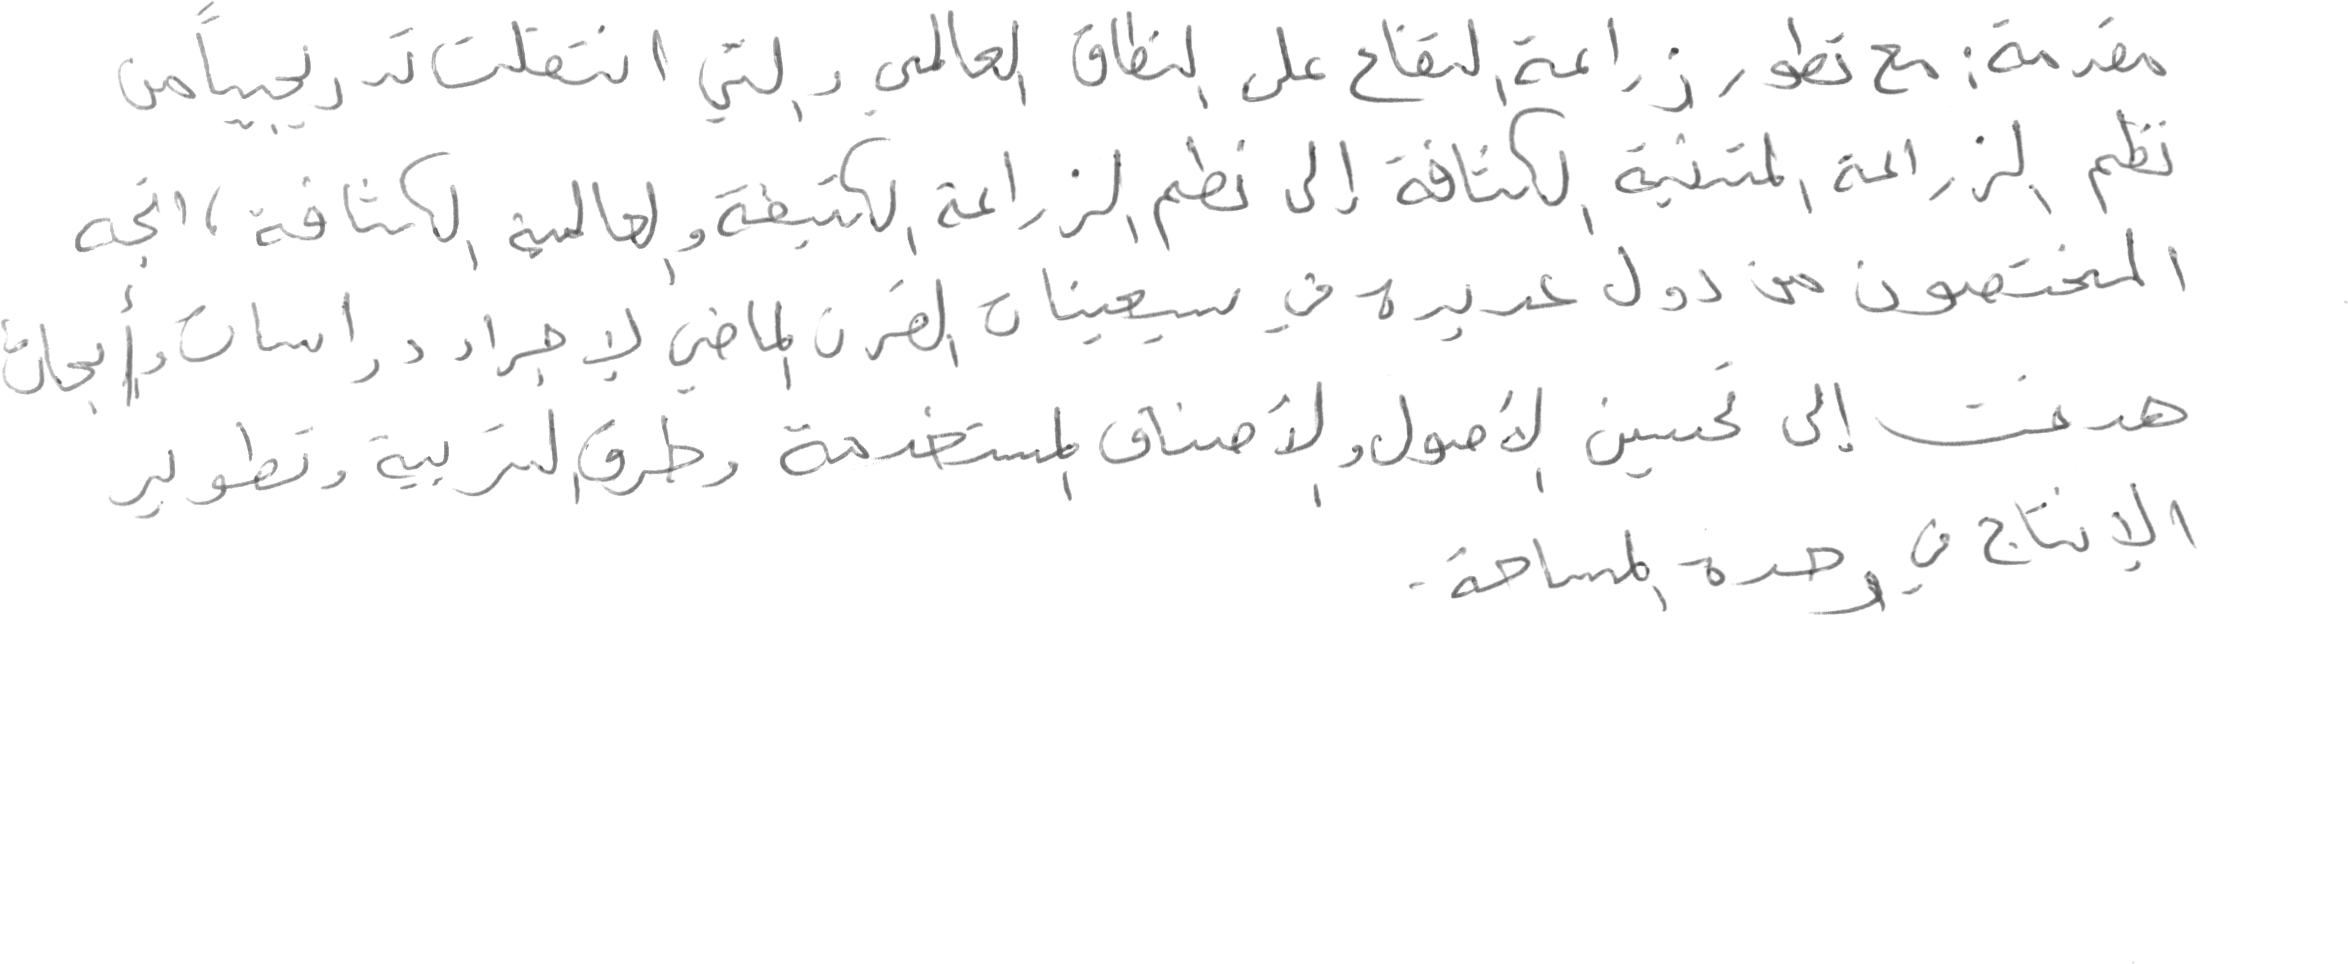 مقدمة: مع تطور زراعة التفاح على النطاق العالمي والتي انتقلت تدريجياً من
نظم الزراعة المتدنية الكثافة إلى نظم الزراعة الكثيفة والعالية الكثافة، اتجه
المختصون من دول عديدة في سبعينات القرن الماضي لإجراء دراسات وأبحاث
هدفت إلى تحسين الأصول والأصناف المستخدمة وطرق التربية وتطوير
الإنتاج في وحدة المساحة.